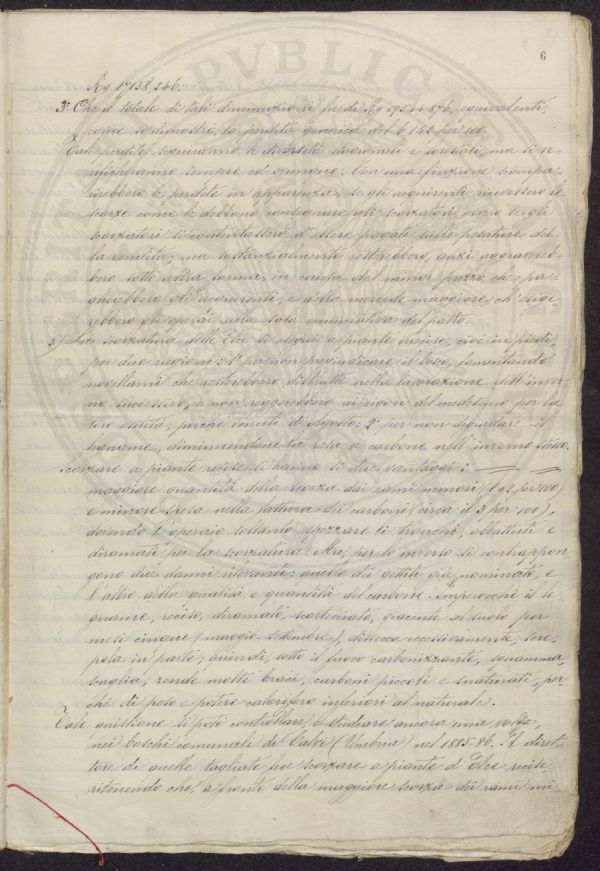 6
Kg 17158,246.
3° Che il totale di tali diminuzioni fu di Kg 19544,876, equivalenti,
come si dimostrò, la perdita generica del 6,142 per 100.
Tali perdite seguiranno le diversità stagionali e forestali, ma si ve-
rificheranno sempre ed ovunque. Con una finzione scompa-
rirebbero le perdite in apparenza, se gli acquirenti ricevessero le
scorze come le debbono consegnare gli scorzatori, ovvero se gli
scorzatori si contentassero d'essere pagati sulle pesature del-
la vendita; ma sostanzialmente resterebbero, anzi aggravereb-
bero sotto altra forma, in causa del minor prezzo che pa-
gherebbero gli acquirenti, e della mercede maggiore ch'esige-
rebbero gli operai alla sola enunciativa del patto.
La scorzatura delle Elce si eseguì a piante incise, cioè in piedi,
per due ragioni: 1ª per non pregiudicare il bosco, sementando
novellami che resterebbero distrutti nella lavorazione dell'inver-
no successivo, e non reggerebbero ai rigori del medesimo per la
loro esilità, perchè venuti d'Agosto: 2ª per non degradare il
legname, diminuendone la resa a carbone nell'inverno stesso.
Scorzare a piante recise si hanno li due vantaggi:
maggiore quantità della scorza dai rami minori (1 a 2 per 100)
e minore spesa nella fattura dei carboni (circa il 3 per 100),
dovendo l'operaio soltanto spezzare li tronchi, abbattuti e
diramati per la scorzatura. Ma, per lo inverso si contrappon-
gono due danni rilevanti: quello dei gettiti già nominati, e
l'altro della qualità e quantità del carbone. Imperocchè il le-
gname, reciso, diramato, scorticciato, giacente al suolo per
mesi cinque (maggio-settembre), dissecca eccessivamente, scre-
pola in parte; quindi, sotto il fuoco carbonizzante, squamma,
scaglia, rende molte braci, carboni piccoli e snaturati, per-
chè di peso e potere calorifero inferiori al naturale.
Tale quistione si potè controllare, e studiare ancora una volta,
nei boschi comunali di Calvi (Umbria) nel 1885-86. Il diret-
tore di quelle tagliate fece scorzare a piante d'Elce recise,
ritenendo che, a fronte della maggiore scorza dei rami mi-